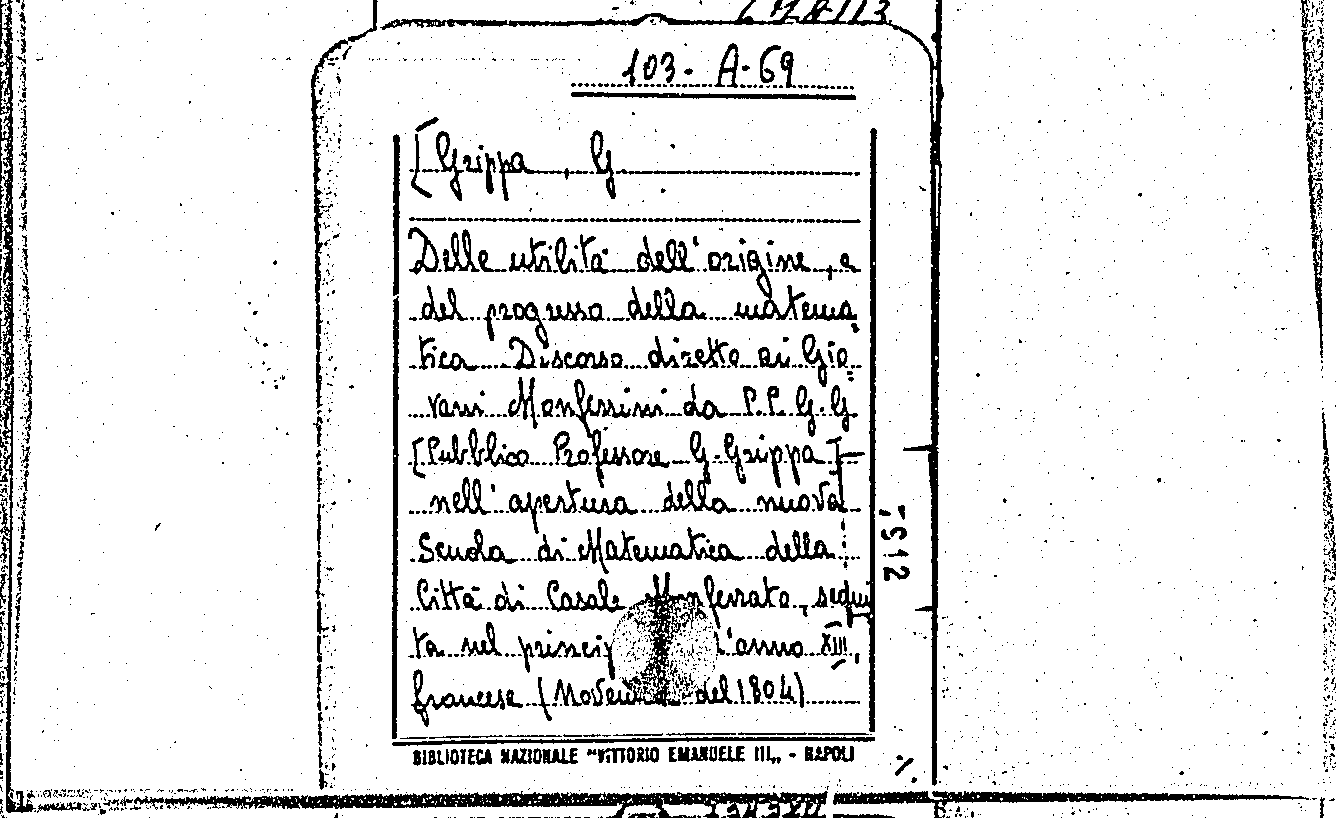 103 - A-69
[Grippa, G.
Delle utilità dell'origine, e
del progresso della matema=
tica Discorso diretto ai Gio=
vani Monferrini da P.P. G.G
[Pubblico Professore G. Grippa]
nell'apertura della nuova
Scuola di Matematica della
Città di Casale Monferrato, segui
ta nel princip l'anno XIII,
francese (Novem del 1804)
BIBLIOTECA NAZIONALE "VITTORIO EMANUELE III" - NAPOLI